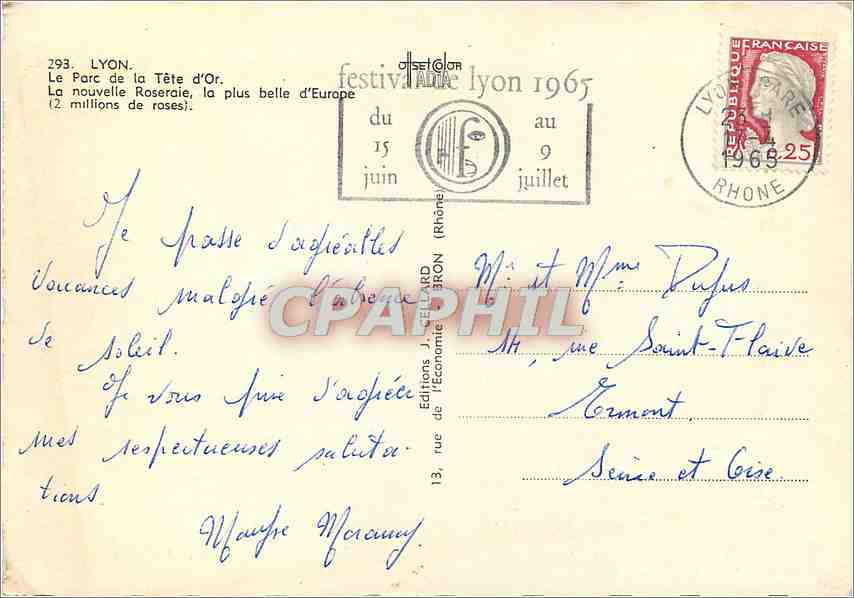 293. LYON.
Le Parc de la Tête d'Or.
La nouvelle Roseraie, la plus belle d'Europe
(2 millions de roses).
OFFSET COLOR
ADIA
festival de lyon 1965
du
15
juin
f
au
9
juillet
REPUBLIQUE FRANÇAISE
0.25
LYON GARE
1965
RHONE
Je passe d'agréables
vacances malgré l'absence
de soleil.
Je vous prie d'agréer
mes respectueuses saluta-
tions.
CPAPHIL
Editions J. CELLARD
13, rue de l'Economie - BRON (Rhône)
Mr et Mme Dufus
14, rue Saint-Flaive
Ermont
Seine et Oise.